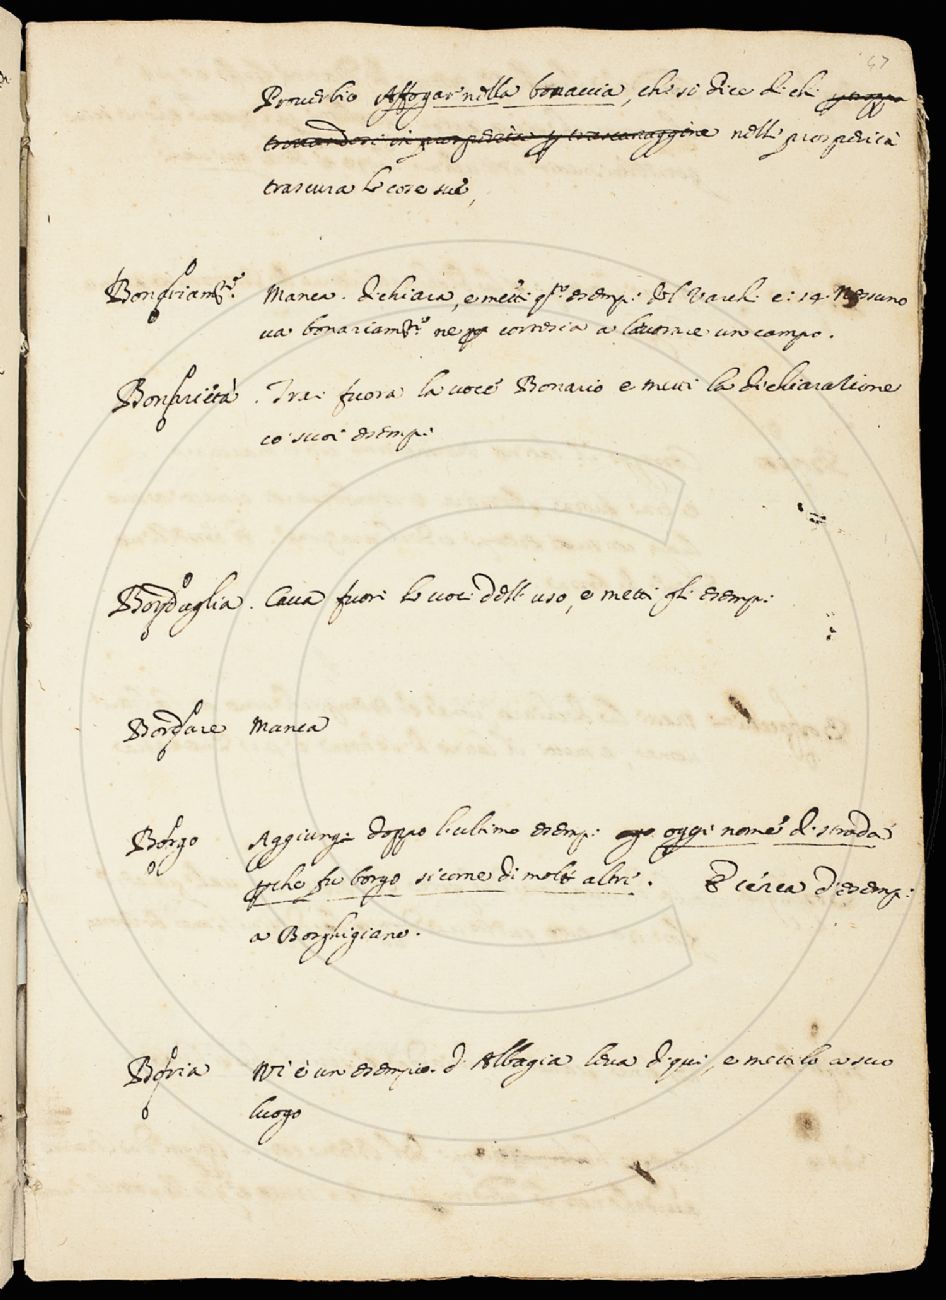 47
Proverbio Affogar nella bonaccia, che si dice di chi p troppa
trovandosi in prosperità p trascuraggine nelle prosperità
trascura le cose sue,
Bonariam.te Manca. dichiara, e metti q.sto esemp: del Varchi e: 14. Nessuno
va bonariam.te ne p cortesia a lavorare un campo.
Bonarietà. Trai fuora la voce Bonario e metti la dichiarazione
co suoi esemp:
Bordaglia. Cava fuori le voci dell uso, e metti gli esemp:
Bordare Manca
Borgo Aggiungi doppo l'ultimo esemp: oggi nome di strada
pche fu borgo sicome di molte altre. E cerca d'esemp:
a Borghigiano.
Boria Vi è un esempio d: Albagia leva di qui, e mettilo a suo
luogo